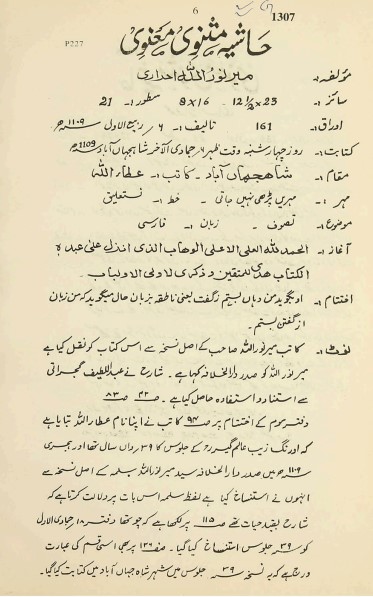 6
1307
P227
حاشیہ مثنوی معنوی
مؤلف :۔ میر نور اللہ احراری
سائز :۔ 23 × 12 1/2 - 16 × 8 سطور :۔ 21
اوراق :۔ 161 تالیف :۔ ۶ ربیع الاول ۱۱۰۹ھ
کتابت :۔ روز چہار شنبہ وقت ظہر ۶ جمادی الآخر شاہجہاں آباد ۱۱۰۹ھ
مقام :۔ شاھجہاں آباد ۔ کاتب :۔ عطار اللہ
مہر :۔ مہریں پڑھی نہیں جاتی ۔ خط :۔ نستعلیق
موضوع :۔ تصوف ۔ زبان :۔ فارسی
آغاز :۔ الحمد للہ العلی الاعلی الوھاب الذی انزل علیٰ عبدہ
الکتاب ھدی للمتقین و ذکریٰ لاولی الالباب ۔
اختتام :۔ او بگوید من دہاں بستم ز گفت یعنی ناطقہ بزبان حال میگوید کہ من زبان
از گفتن بستم ۔
نوٹ :۔ کاتب میر نور اللہ صاحب کے اصل نسخہ سے اس کتاب کو نقل کیا ہے
میر نور اللہ کو صدر دار الخلافہ کہا ہے ۔ شارح نے عبد اللطیف گجراتی
سے استناد و استفادہ حاصل کیا ہے ۔ ص ۴۲ ص ۸۳
دفتر سوم کے اختتام پر ص ۹۴ کاتب نے اپنا نام عطار اللہ بتایا ہے
کہ اورنگ زیب عالمگیر رح کے جلوس کا ۳۹ واں سال تھا اور ہجری
۱۱۰۹ھ میں صدر دار الخلافہ سید میر نور اللہ سلمہ کے اصل نسخہ سے
انہوں نے استنساخ کیا ہے لفظ سلمہ اس بات پر دلالت کرتا ہے کہ
شارح بقید حیات تھے ص ۱۱۵ پر لکھا ہے کہ چوتھا دفتر ۱۸ جمادی الاول
کو ۳۹ جلوس استنساخ کیا گیا ۔ ص ۱۳۶ پر بھی اسی قسم کی عبارت
درج ہے کہ یہ نسخہ ۳۹ جلوس میں شہر شاہ جہاں آباد میں کتابت کیا گیا ۔